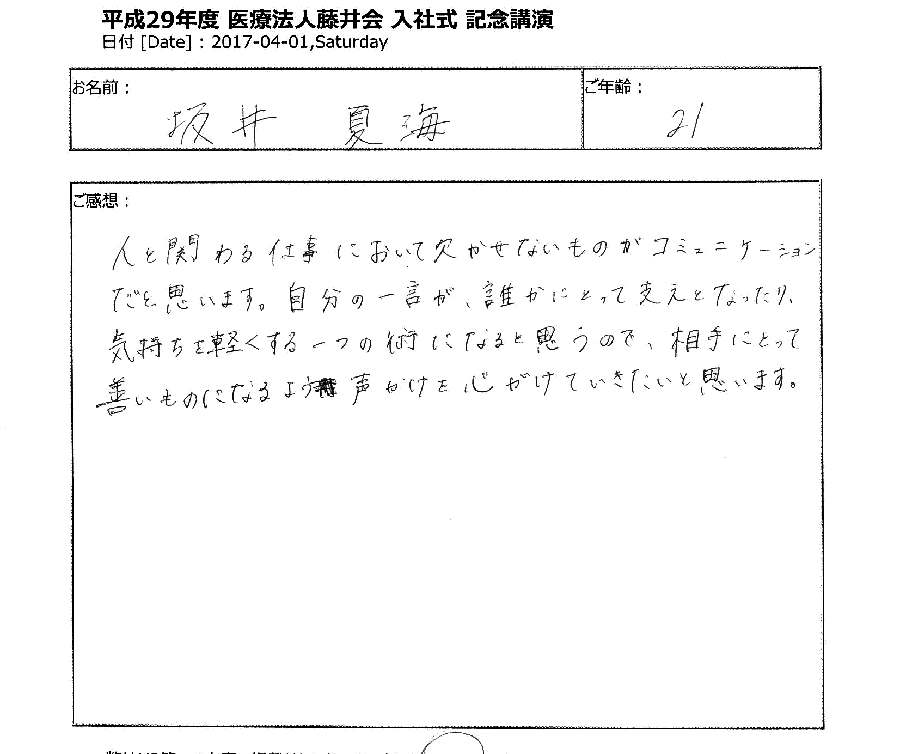 平成29年度 医療法人藤井会 入社式 記念講演
日付 [Date] : 2017-04-01,Saturday
お名前：
坂井 夏海
ご年齢：
21
ご感想：
人と関わる仕事において欠かせないものがコミュニケーション
だと思います。自分の一言が、誰かにとって支えとなったり、
気持ちを軽くする一つの術になると思うので、相手にとって
善いものになるよう声かけを心がけていきたいと思います。